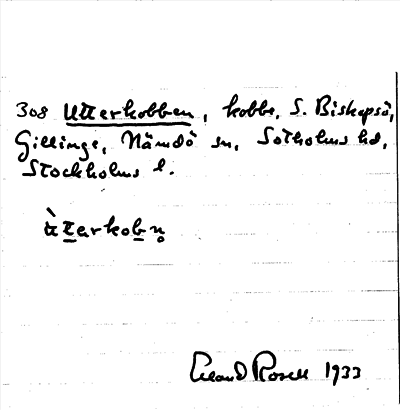 308 Utterkobben, kobbe, S. Biskopsö,
Gillinge, Nämdö sn, Sotholms hd,
Stockholms l.
ùtarkobn̥
Erland Rosell 1933